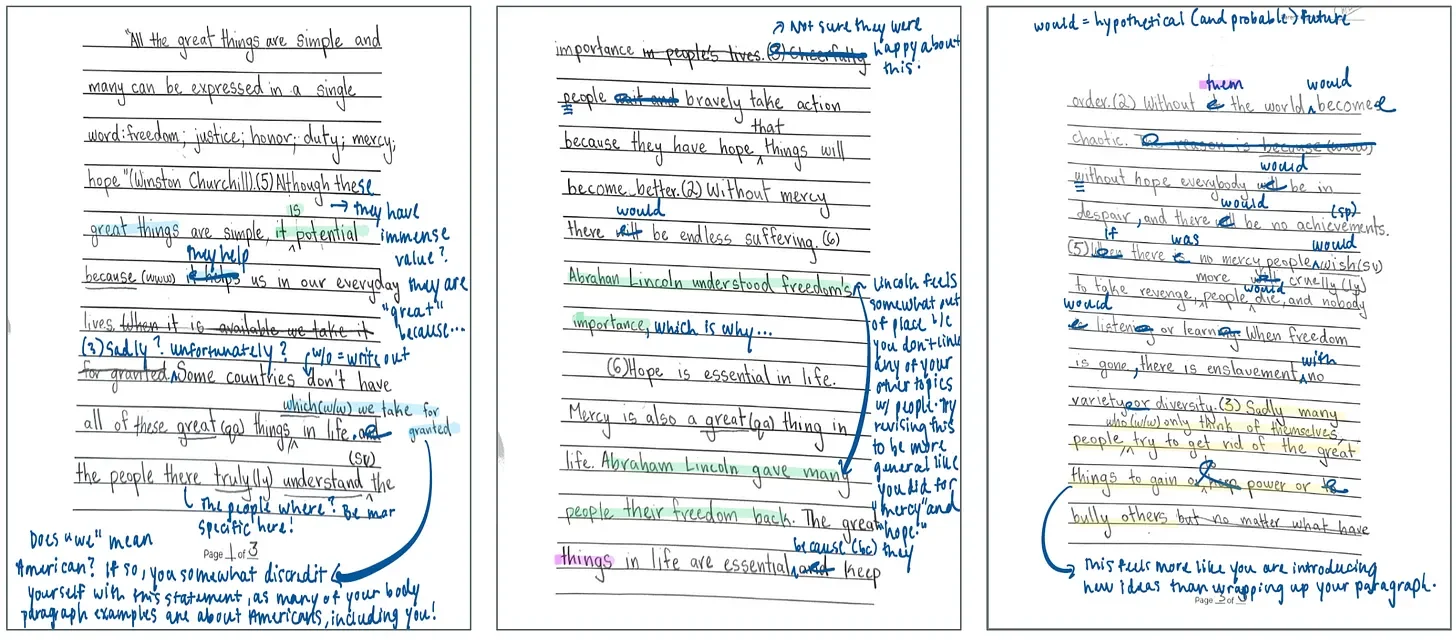 "All the great things are simple and
many can be expressed in a single
word:freedom; justice; honor; duty; mercy;
hope "(Winston Churchill).(5) Although these
→ they have
immense
value?
is
great things are simple, it potential
they help
because (www) it helps us in our everyday
they are
"great"
because...
lives. When it is available we take it
(3) Sadly? Unfortunately?
w/o = write out
for granted. Some countries don't have
which (w/w) we take for
granted
all of these great (qa) things in life. and
(sv)
the people there truly (ly) understand the
The people where? Be mor
specific here!
Does "we" mean
American? If so, you somewhat discredit
yourself with this statement, as many of your body
paragraph examples are about Americans, including you!
Page 1 of 3
→ Not sure they were
happy about
this.
importance in people's lives. (3) Cheerfully
people wait and bravely take action
that
because they have hope things will
become better. (2) Without mercy
would
there will be endless suffering. (6)
Abrahan Lincoln understood freedom's
importance, which is why...
Lincoln feels
somewhat out
of place b/c
you don't link
any of your
other topics
w/ people. Try
revising this
to be more
general like
you did for
"mercy" and
"hope."
(6) Hope is essential in life.
Mercy is also a great (qa) thing in
life. Abraham Lincoln gave many
people their freedom back. The great
because (bc) they
things in life are essential, and keep
would = hypothetical (and probable) future
them would
order. (2) Without the world become
chaotic. The reason is because (www)
would
without hope everybody will be in
would (sp)
despair, and there will be no achievements.
if was would
(5) When there is no mercy people wish (sv)
more
to take revenge, people die, cruelly (ly) and nobody
would
would
listening or learning. When freedom
with
is gone, there is enslavement, no
variety or diversity. (3) Sadly many
who (w/w) only think of themselves,
people try to get rid of the great
things to gain or keep power or to
bully others but no matter what have
This feels more like you are introducing
new ideas than wrapping up your paragraph.
Page 3 of 3